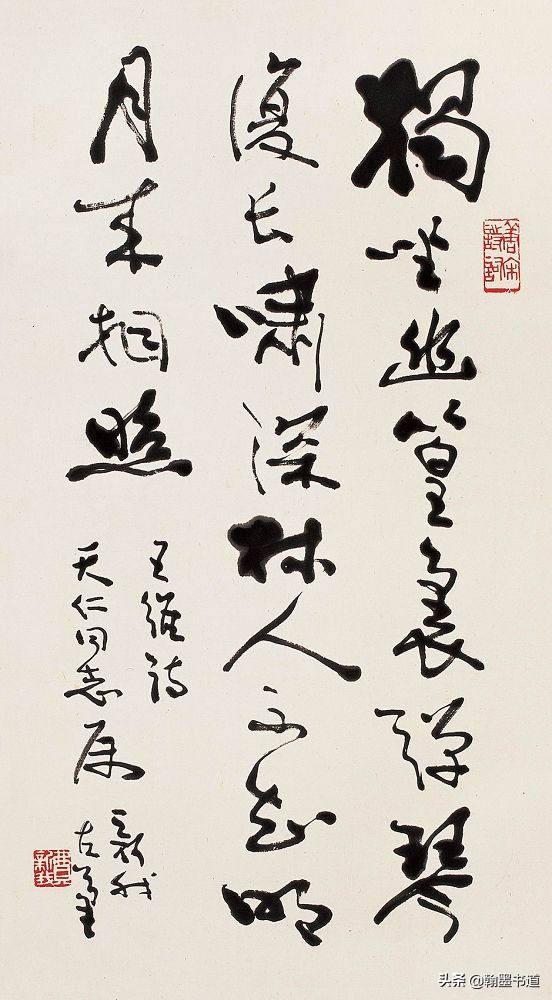 獨坐幽篁裏彈琴
復长嘯深林人不知明
月来相照
王维诗
天仁同志属
新我
左笔
头条 @翰墨书道